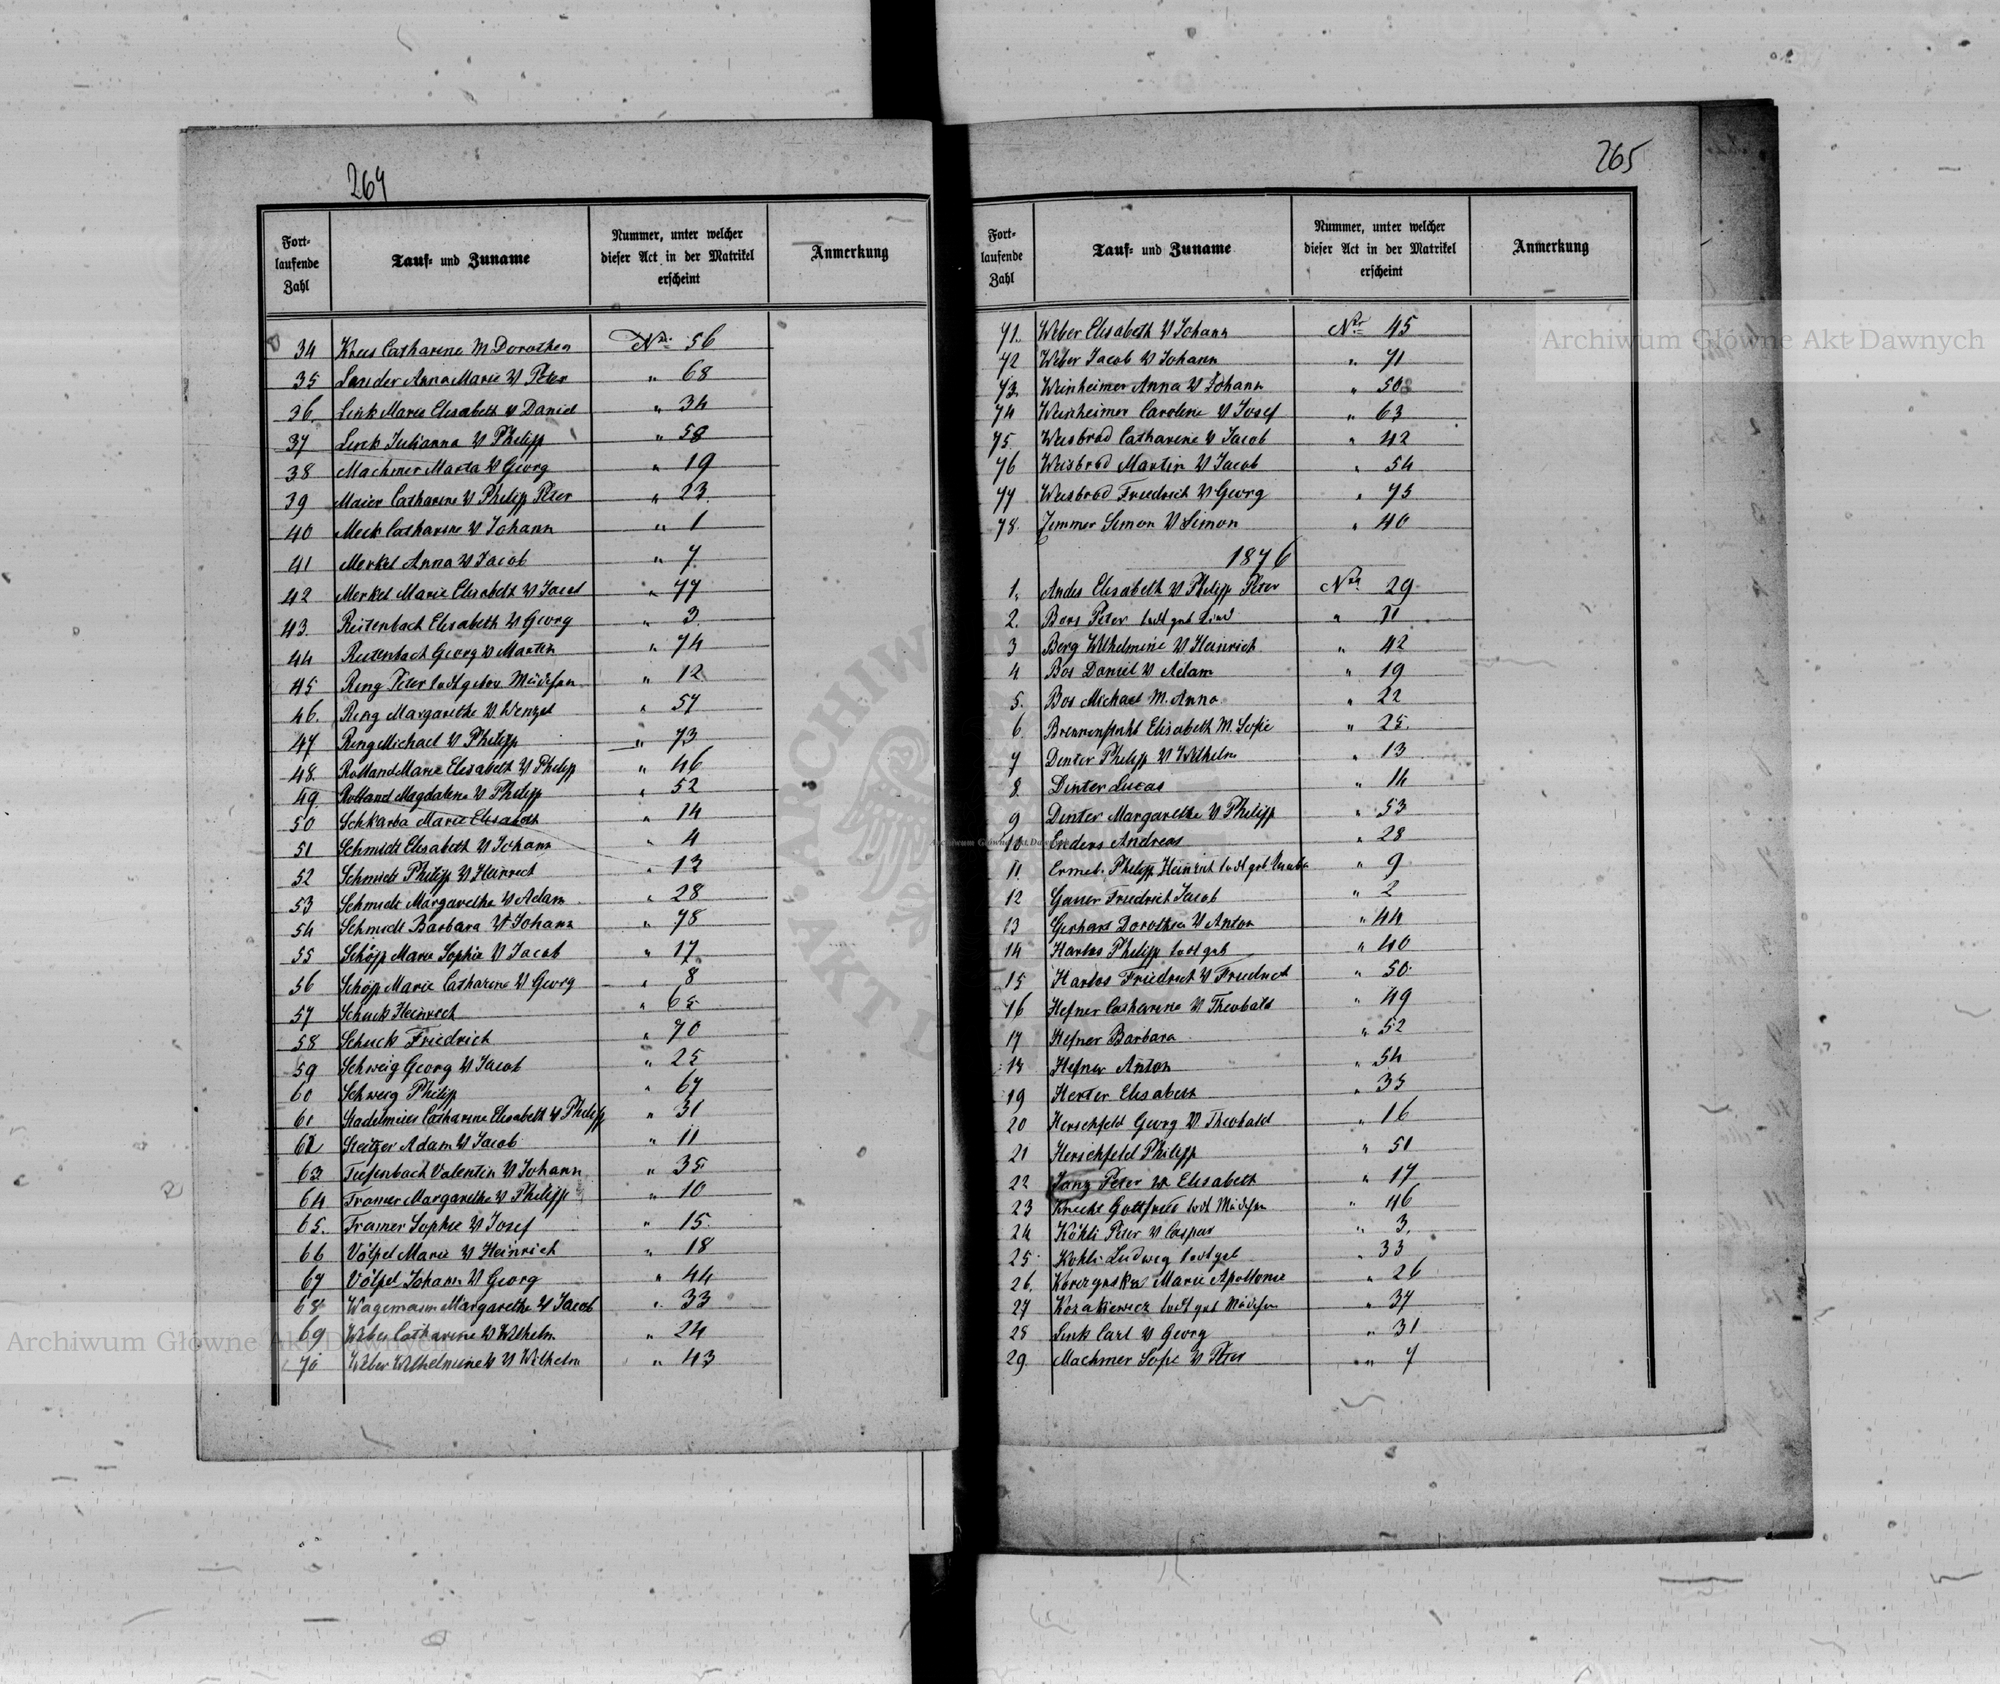 264
Fort-
laufende
Zahl
Tauf- und Zuname
Nummer, unter welcher
dieser Act in der Matrikel
erscheint
Anmerkung
34 Knies Catharine M Dorothea Nr. 56
35 Sander Anna Marie V Peter " 68
36. Link Marie Elisabeth V Daniel " 34
37 Link Julianna V Philipp " 58
38 Machmer Marta V Georg " 19
39 Maier Catharine V Philipp Peter " 23
40 Meck Catharine V Johann " 1
41 Merkel Anna V Jacob " 7
42 Merkel Marie Elisabeth V Jacob " 77
43. Reitenbach Elisabeth V Georg " 3
44 Reitenbach Georg V Martin " 74
45 Ring Peter todtgebor. Mädchen " 12
46. Ring Margarethe V Wenzel " 57
47 Ring Michael V Philipp " 73
48. Rolland Marie Elisabeth V Philipp " 46
49. Rolland Magdalena V Philipp " 52
50 Schkarba Marie Elisabeth " 14
51 Schmidt Elisabeth V Johann " 4
52 Schmidt Philipp V Heinrich " 13
53 Schmidt Margarethe V Adam " 28
54 Schmidt Barbara V Johann " 78
55 Schöpp Marie Sophie V Jacob " 17
56 Schöpp Marie Catharine V Georg " 8
57 Schuck Heinrich " 65
58 Schuck Friedrich " 70
59 Schweig Georg V Jacob " 25
60 Schweig Philipp " 67
61 Stadelmeier Catharine Elisabeth V Philipp " 31
62 Steitzer Adam V Jacob " 11
63. Tiefenbach Valentin V Johann " 35
64 Tramer Margarethe V Philipp " 10
65. Tramer Sophie V Josef " 15
66 Völpel Marie V Heinrich " 18
67 Völpel Johann V Georg " 44
68 Wagemann Margarethe V Jacob " 33
69 Weber Catharine V Wilhelm " 24
70 Weber Wilhelmine V Wilhelm " 43
265
Fort-
laufende
Zahl
Tauf- und Zuname
Nummer, unter welcher
dieser Act in der Matrikel
erscheint
Anmerkung
71. Weber Elisabeth V Johann Nr 45
72 Weber Jacob V Johann " 71
73. Weinheimer Anna V Johann " 50
74 Weinheimer Caroline V Josef " 63
75 Weisbrod Catharine V Jacob " 42
76 Weisbrod Martin V Jacob " 54
77 Weisbrod Friedrich V Georg " 75
78. Zimmer Simon V Simon " 40
1876
1. Andes Elisabeth V Philipp Peter Nr 29
2. Bers Peter todt geb Kind " 11
3 Berg Wilhelmine V Heinrich " 42
4 Bos Daniel V Adam " 19
5. Bos Michael M. Anna " 22
6. Elisabeth M. Sofie " 25
7 Dinter Philipp V Wilhelm " 13
8. Dinter Lucas " 14
9 Dinter Margarethe V Philipp " 53
10 Enders Andreas " 28
11. Philipp Heinrich todt geb Knabe " 9
12 Gauer Friedrich Jacob " 2
13 Gerhard Dorothea V Anton " 44
14 Harlos Philipp todt geb " 40
15 Harlos Friedrich V Friedrich " 50
16 Hefner Catharine V Theobald " 49
17 Hefner Barbara " 52
18 Hefner Anton " 54
19 Herter Elisabeth " 35
20 Herschfeld Georg V. Theobald " 16
21 Herschfeld Philipp " 51
22 Janz Peter V Elisabeth " 17
23 Knecht Gottfried todt Mädchen " 46
24 Köhli Peter V Caspar " 3.
25 Kohli Ludwig todt geb " 33
26. Marie Apollonie " 26
27 Kozakiewicz todt geb Mädchen " 37
28 Link Carl V Georg " 31
29 Machmer Sofie V Peter " 7
Archiwum Główne Akt Dawnych
Archiwum Główne Akt Dawnych
Archiwum Główne Akt Dawnych